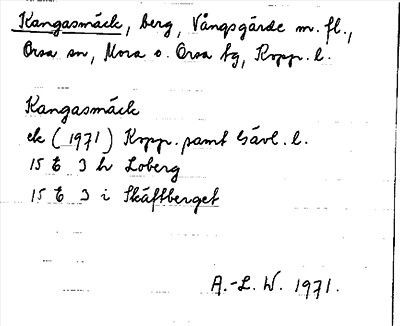 Kangasmäck, berg, Vångsgärde m. fl.,
Orsa sn, Mora o. Orsa tg, Kopp. l.
Kangasmäck
ek (1971) Kopp. samt Gävl. l.
15 E 3 h Loberg
15 E 3 i Skäftberget
A.-L. W. 1971.